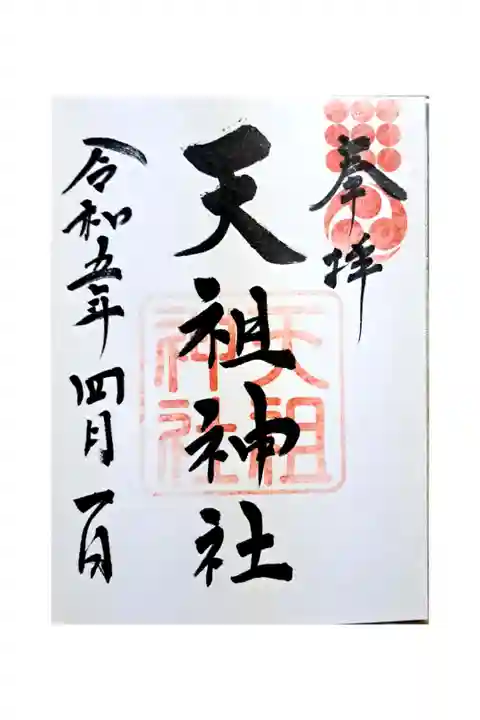 奉拝
天祖神社
天祖
神社
令和五年四月一日